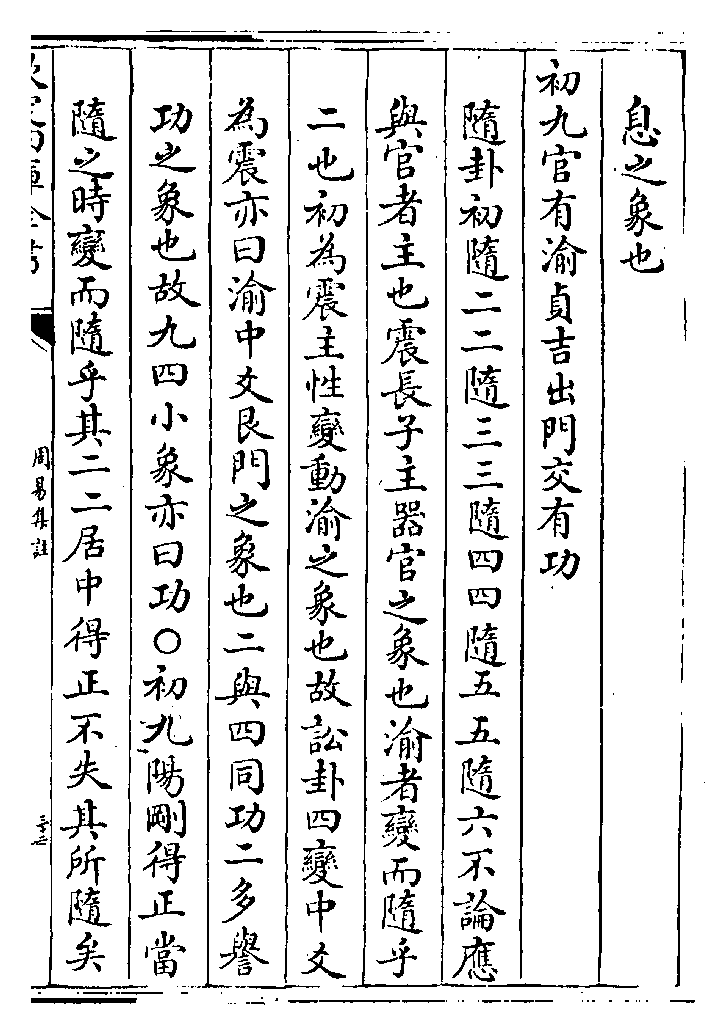 息之象也
初九官有渝貞吉出門交有功
隨卦初隨二二隨三三隨四四隨五五隨六不論應
與官者主也震長子主器官之象也渝者變而隨乎
二也初為震主性變動渝之象也故訟卦四變中爻
為震亦曰渝中爻艮門之象也二與四同功二多譽
功之象也故九四小象亦曰功○初九陽剛得正當
隨之時變而隨乎其二二居中得正不失其所隨矣
欽定四庫全書
周易集註